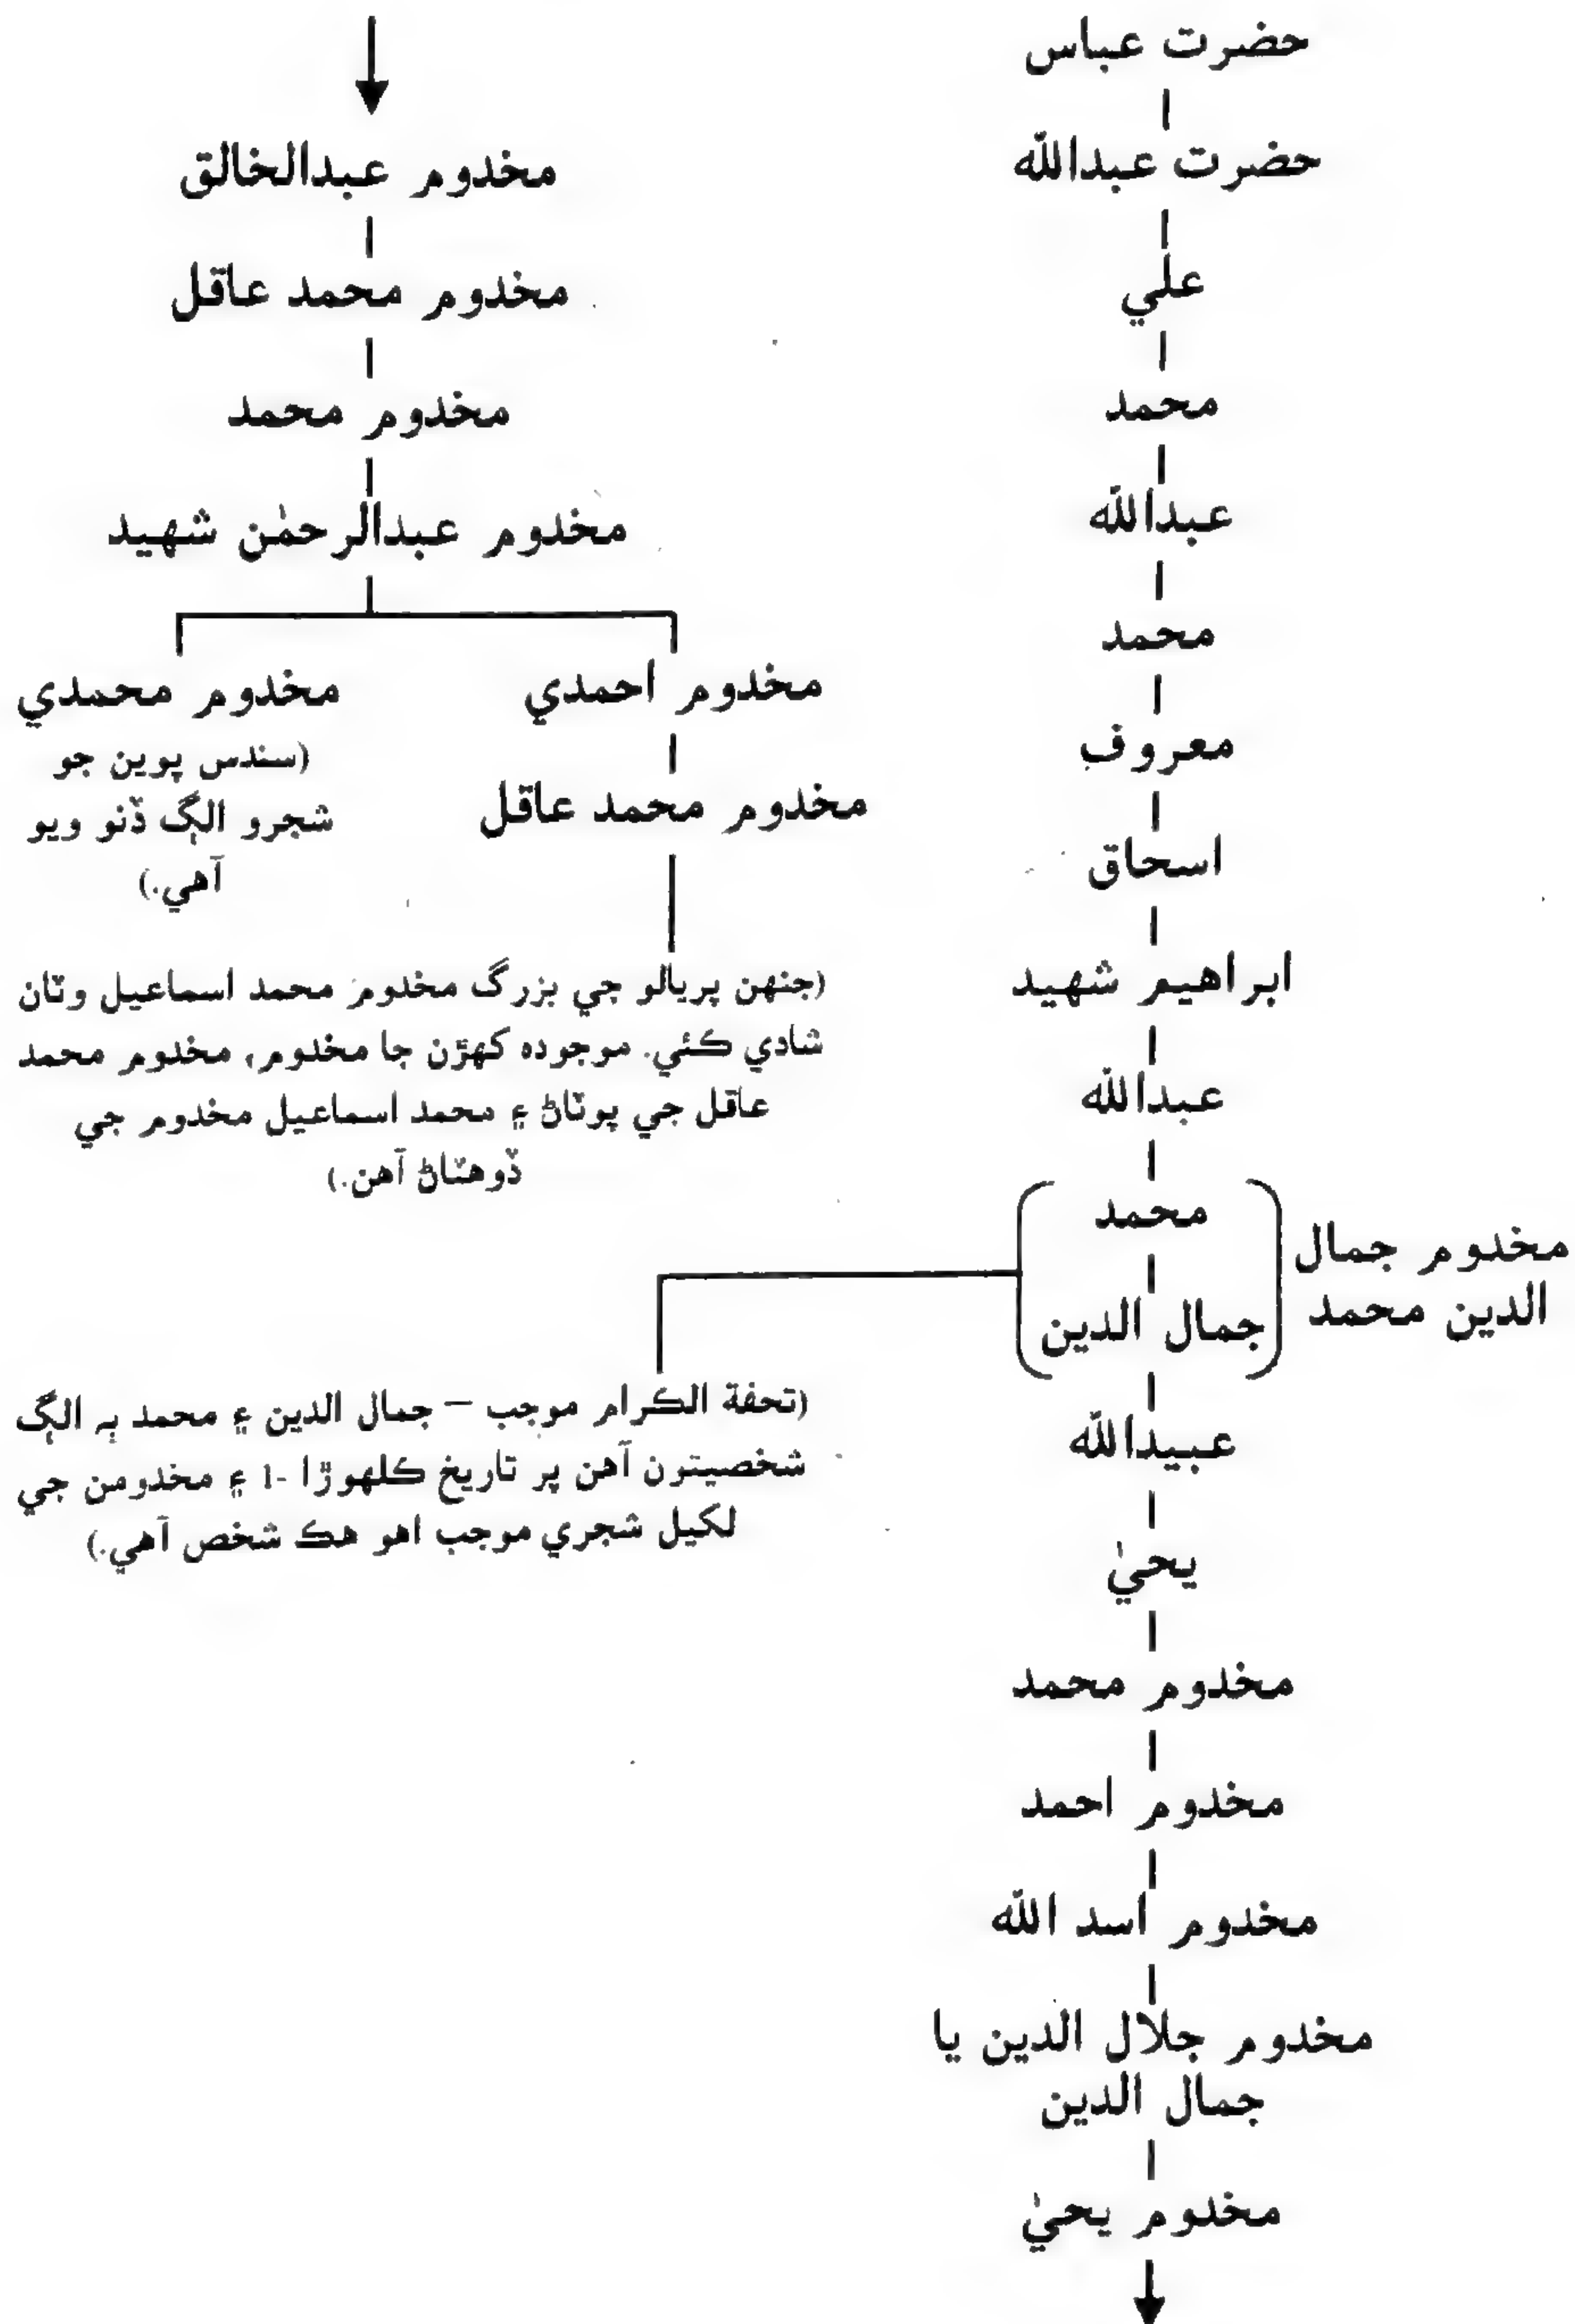 حضرت عباس
حضرت عبدالله
علي
محمد
عبدالله
محمد
معروف
اسحاق
ابراهيم شهيد
عبدالله
محمد
جمال الدين
مخدوم جمال
الدين محمد
عبيدالله
يحيٰ
مخدوم محمد
مخدوم احمد
مخدوم اسد الله
مخدوم جلال الدين يا
جمال الدين
مخدوم يحيٰ
مخدوم عبدالخالق
مخدوم محمد عاقل
مخدوم محمد
مخدوم عبدالرحمٰن شهيد
مخدوم احمدي
مخدوم محمد عاقل
(جنهن پريالو جي بزرگ مخدوم محمد اسماعيل وٽان
شادي ڪئي. موجوده کهڙن جا مخدوم، مخدوم محمد
عاقل جي پوٽاڻ ۽ محمد اسماعيل مخدوم جي
ڏوهٽاڻ آهن.)
مخدوم محمدي
(سندس پوين جو
شجرو الڳ ڏنو ويو
آهي.)
(تحفة الڪرام موجب – جمال الدين ۽ محمد ٻه الڳ
شخصيتون آهن پر تاريخ ڪلهوڙا -1 ۽ مخدومن جي
لکيل شجري موجب اهو هڪ شخص آهي.)